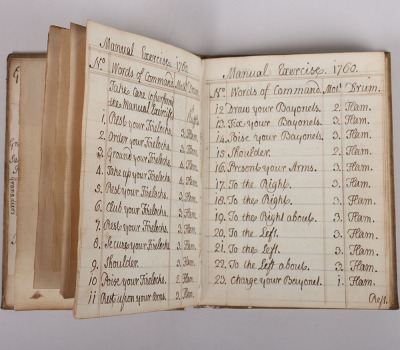 Manual Exercise 1760.
No. Words of Command. Mots. Drum.
Take care to perform
the Manual Exercise Ruffle
1. Rest your Firelocks. 3. Flam.
2. Order your Firelocks. 3. Flam.
3. Ground your Firelocks. 4. Flam.
4. Take up your Firelocks. 4. Flam.
5. Rest your Firelocks. 3. Flam.
6. Club your Firelocks. Flam.
7. Rest your Firelocks. 3. Flam.
8. Secure your Firelocks. 3. Flam.
9. Shoulder. 3. Flam.
10 Poise your Firelocks. 2. Flam.
11 Rest upon your Arms. 3. Flam.
Manual Exercise. 1760.
No. Words of Command. Mots. Drum.
12. Draw your Bayonets. 2. Flam.
13. Fix your Bayonets. 3. Flam.
14. Poise your Bayonets. 3. Flam.
15. Shoulder. 2. Flam.
16. Present your Arms. 3. Flam.
17. To the Right. 3. Flam.
18. To the Right. 3. Flam.
19. To the Right about. 3. Flam.
20. To the Left. 3. Flam.
21. To the Left. 3. Flam.
22. To the Left about. 3. Flam.
23. Charge your Bayonet. 1. Flam.
Rest.